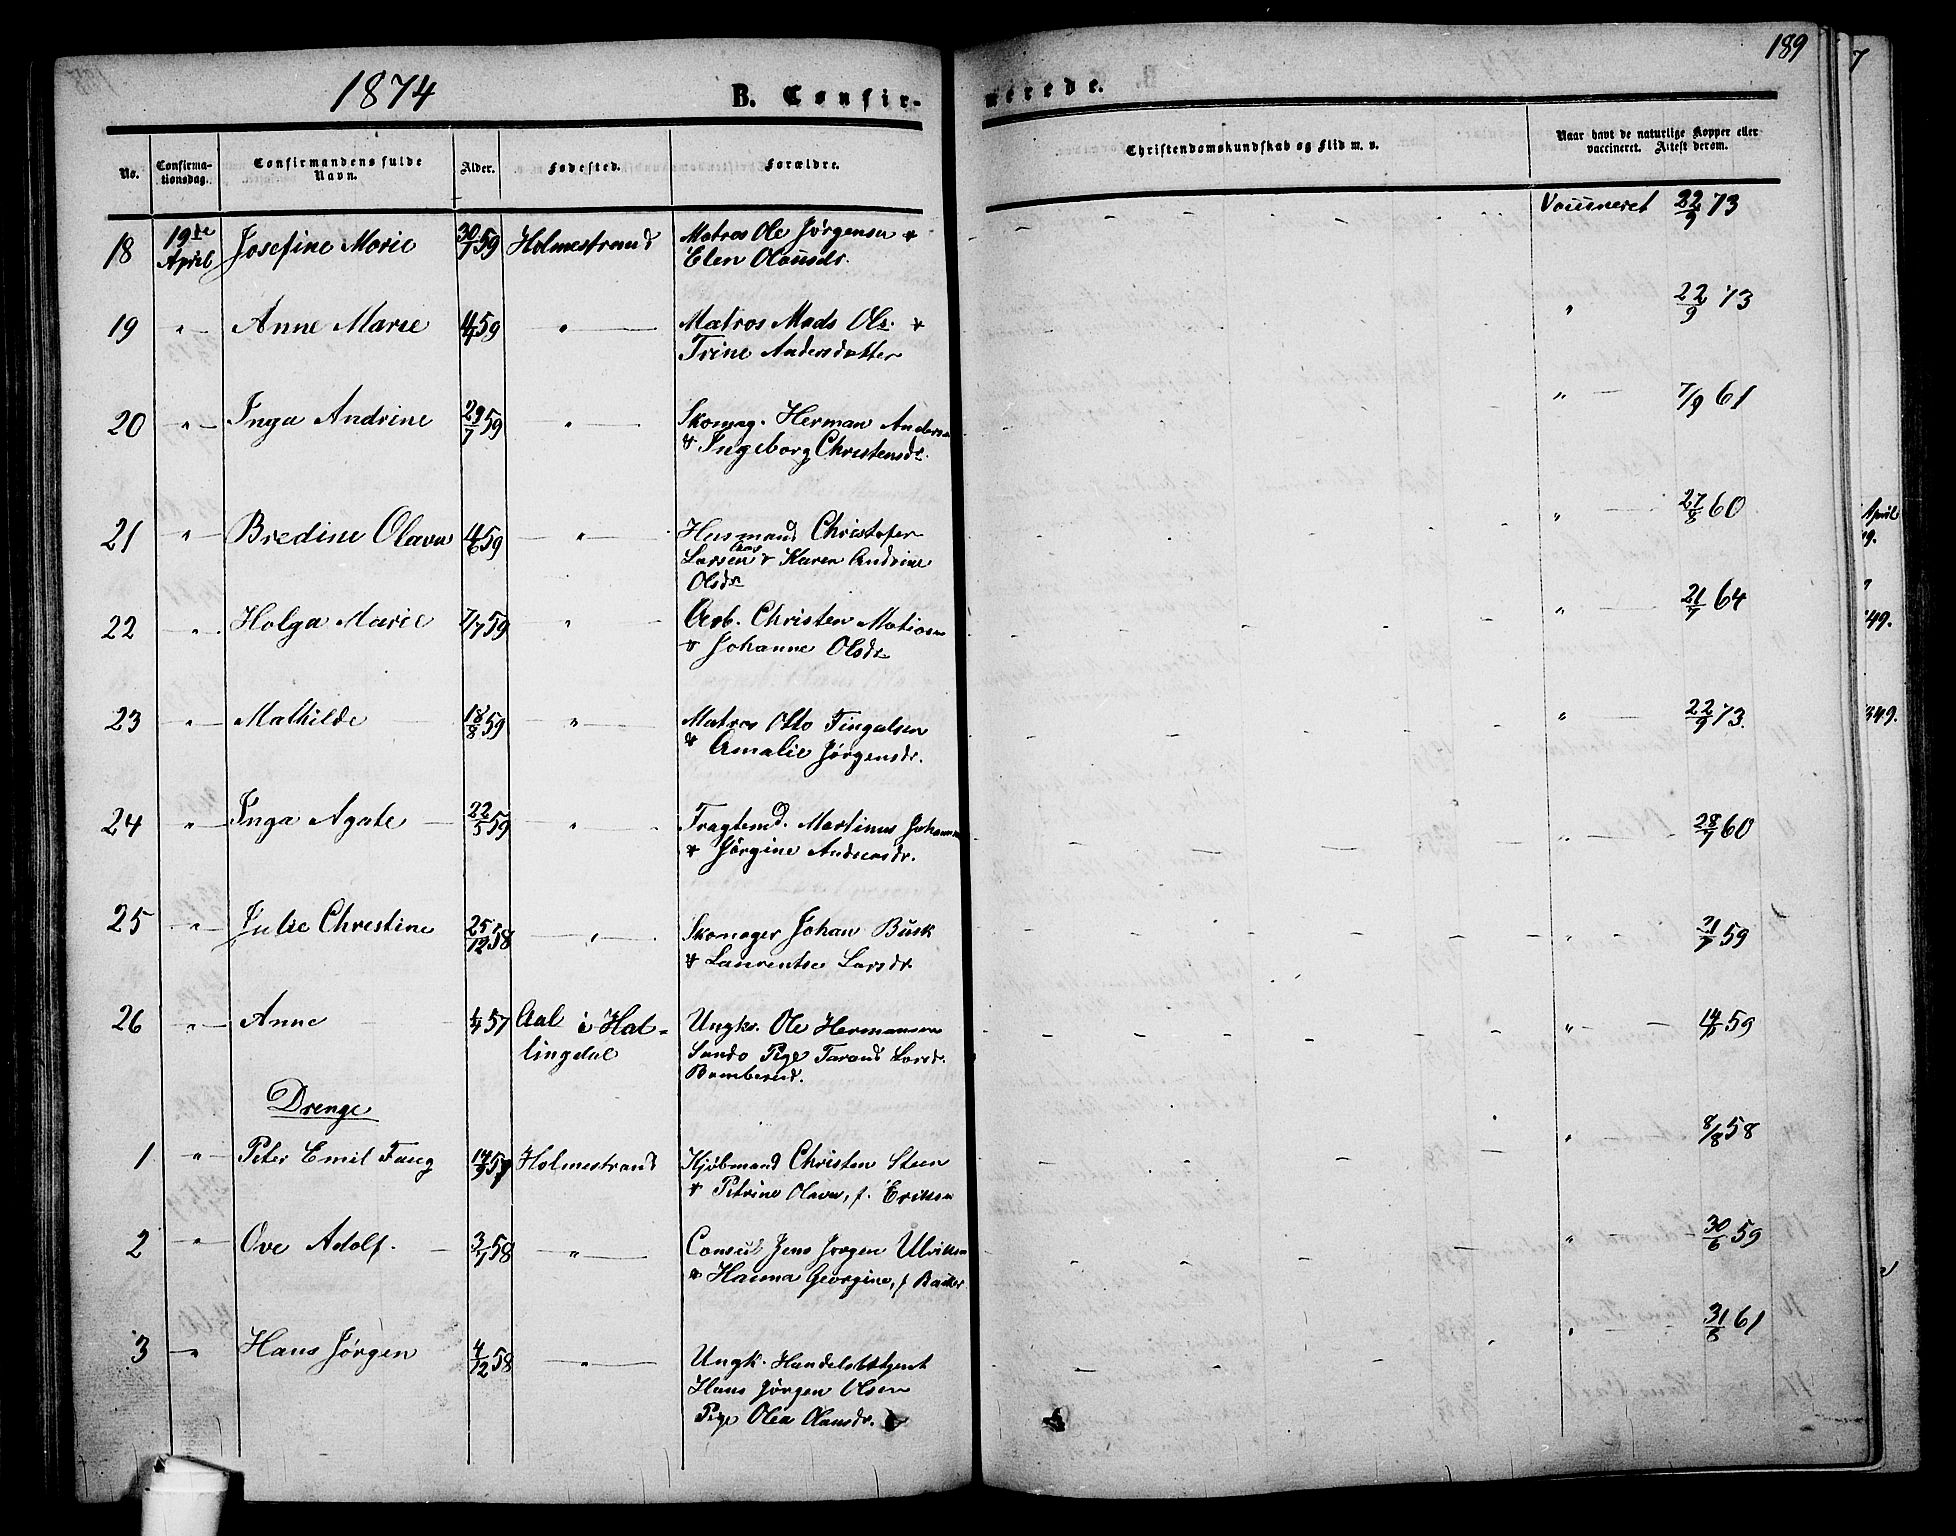 1874
B. Confir-
merede.
189
No.
Confirma-
tionsdag.
Confirmandens fulde
Navn.
Alder.
Fødested.
Forældre.
Christendomskundskab og Flid m. v.
Naar havt de naturlige Kopper eller
vaccineret. Attest derom.
18 19de April Josefine Marie 30/7 59 Holmestrand Matros Ole Jørgensen &
Elen Olausdr. Vaccineret 22/9 73
19 " Anne Marie 59 " Matros Mads Ols. &
Trine Andersdatter " 22/9 73
20 " Inga Andrine 29/7 59 " Skomag. Herman Andersen
& Ingeborg Christensdr. " 7/9 61
21 " Bredine Olava 4/6 59 " Husmand Christofer
Larsen & Karen Andrine
Olsdr " 27/8 60
22 " Helga Marie 7/7 59 " Arb. Christen Matiasen
& Johanne Olsdr " 21/7 64
23 " Mathilde 18/8 59 " Matros Otto Fingalsen
& Amalie Jørgensdr. " 22/9 73.
24 " Inga Agate 22/5 59 " Fragtemd. Martinus Johannsen
& Jørgine Andersdr. " 28/7 60
25 " Julie Christine 25/12 58 " Skomager Johan Busk
& Laurentse Larsdr. " 21/7 59
26 " Anne 57 Aal i Hal-
lingdal Ungk. Ole Hermansen
Sando Pige Tarand Larsdr.
Bomberud. " 59
Drenge
1 " Peter Emil Fang 57 Holmestrand Kjøbmand Christen Steen
& Petrine Olava, f. Eriksen " 8/8 58
2 " Ove Adolf. 3/7 58 " Consul Jens Jørgen Ulriksen
& Hanna Georgine, f Backer " 30/6 59
3 " Hans Jørgen 4/12 58 " Ungk. Handelsagent
Hans Jørgen Olsen
Pige Olea Olausdr. " 31/8 61
April